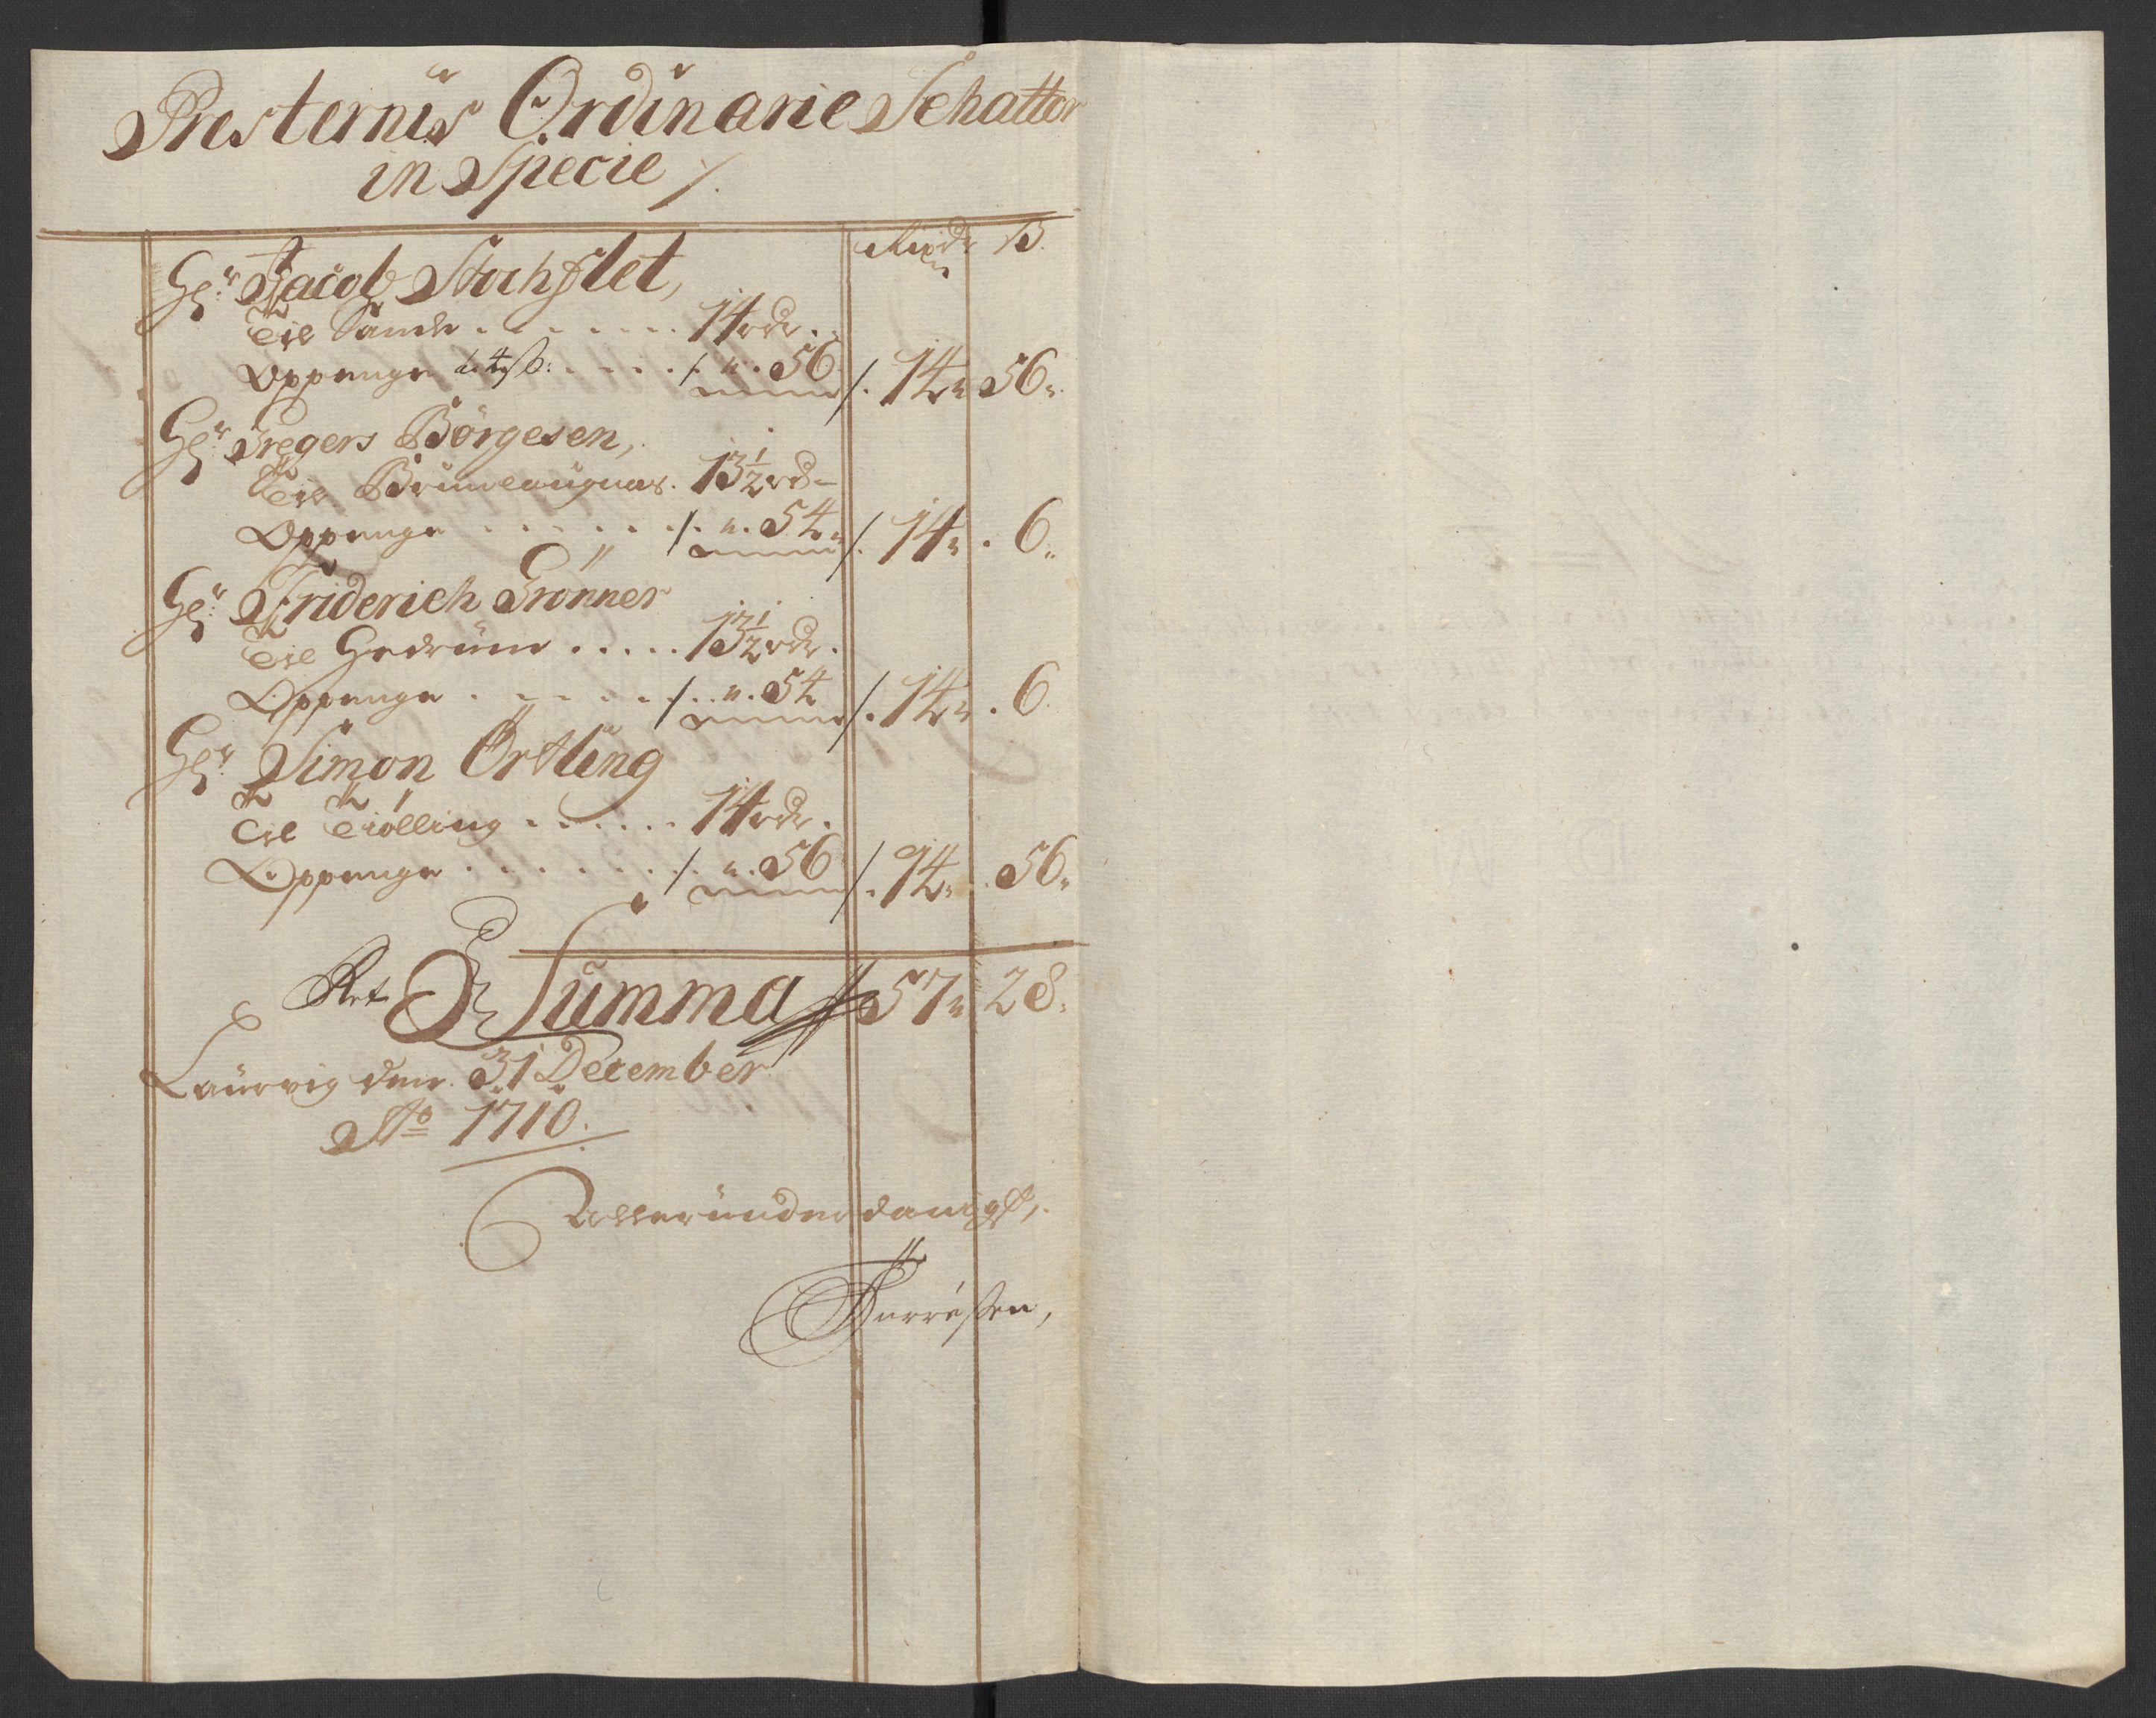 Presternis Ordinarie Schatter
in Specie /.
Rixdr ß.
Hr Jacob Stochflet,
Til Sande . . . . . . . 14 rdr.
Oppenge à 4 ß: . . . . /. ". 56 /. 14 " 56 "
Hr Gregers Börgesen,
Til Brunlaugnæs. 13½ rd
Oppenge . . . . . . /. ". 54 " /. 14 " . 6 "
Hr Friderich Grönner
Til Hedrum . . . . . 13½ rdr.
Oppenge . . . . . . /. ". 54 /. 14 " . 6
Hr Simon Örtling
Til Tiølling . . . . . . 14 rdr.
Oppenge . . . . . . . /. ". 56 /. 14 " . 56 "
Ret Summa 57 " 28.
Laurvig den. 31 December
Ao 1710.
Allerunderdanigst,